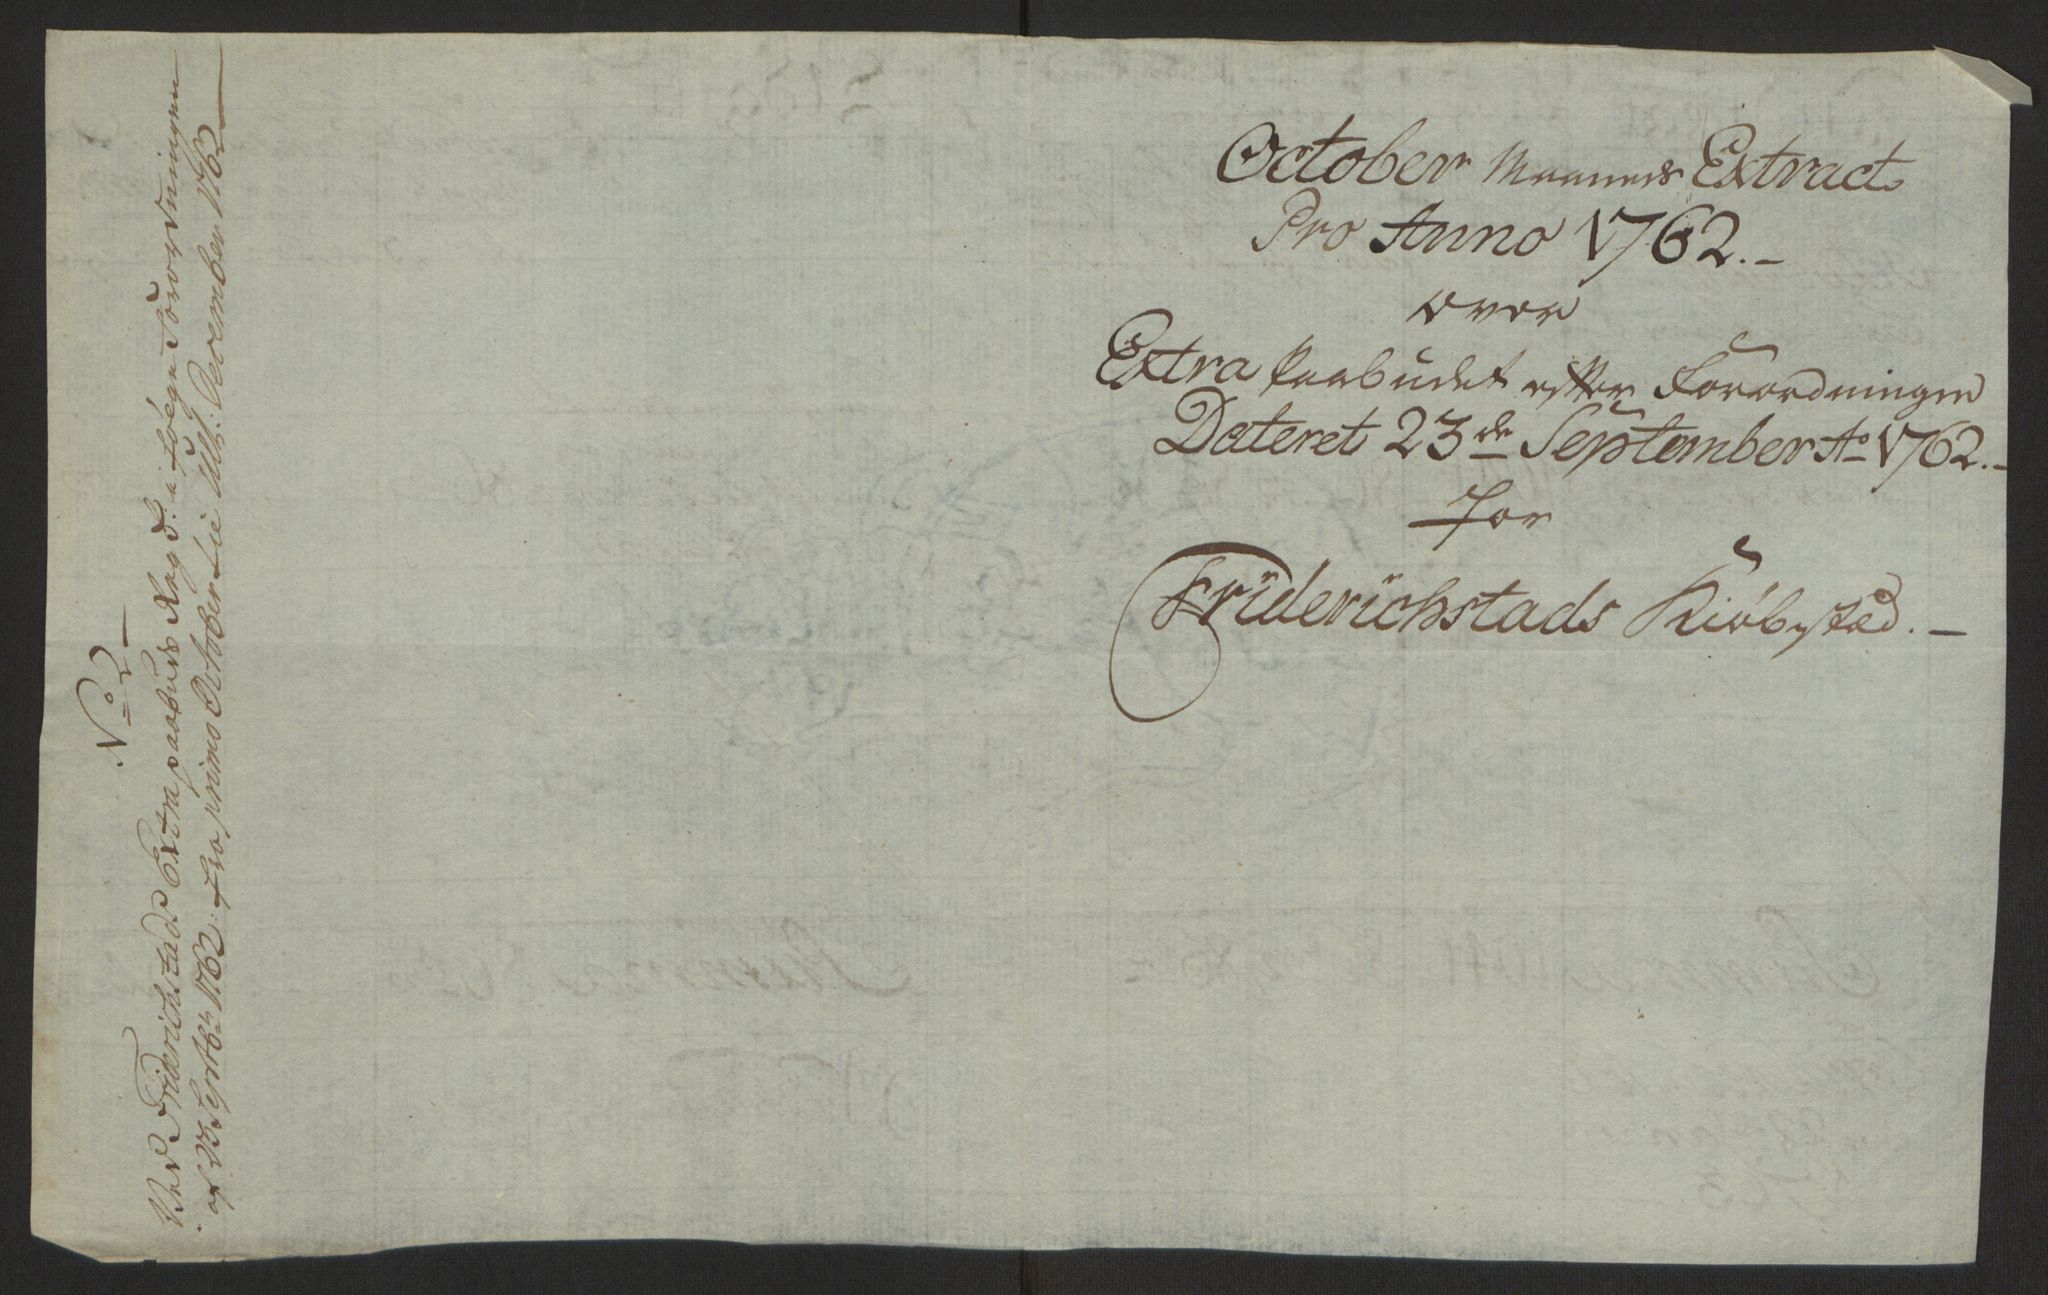 No 2
Ved Friderichstads Extra paabuds Regn: a følge Forordningen
af 23 Septbr 1762. fra primo October tie Ult: December 1762
October Maaneds Extract
Pro Anno 1762.
over
Extra Paabudet efter Forordningen
Dateret 23de September Ao 1762.
For
Friderichstads Kiøbsted.